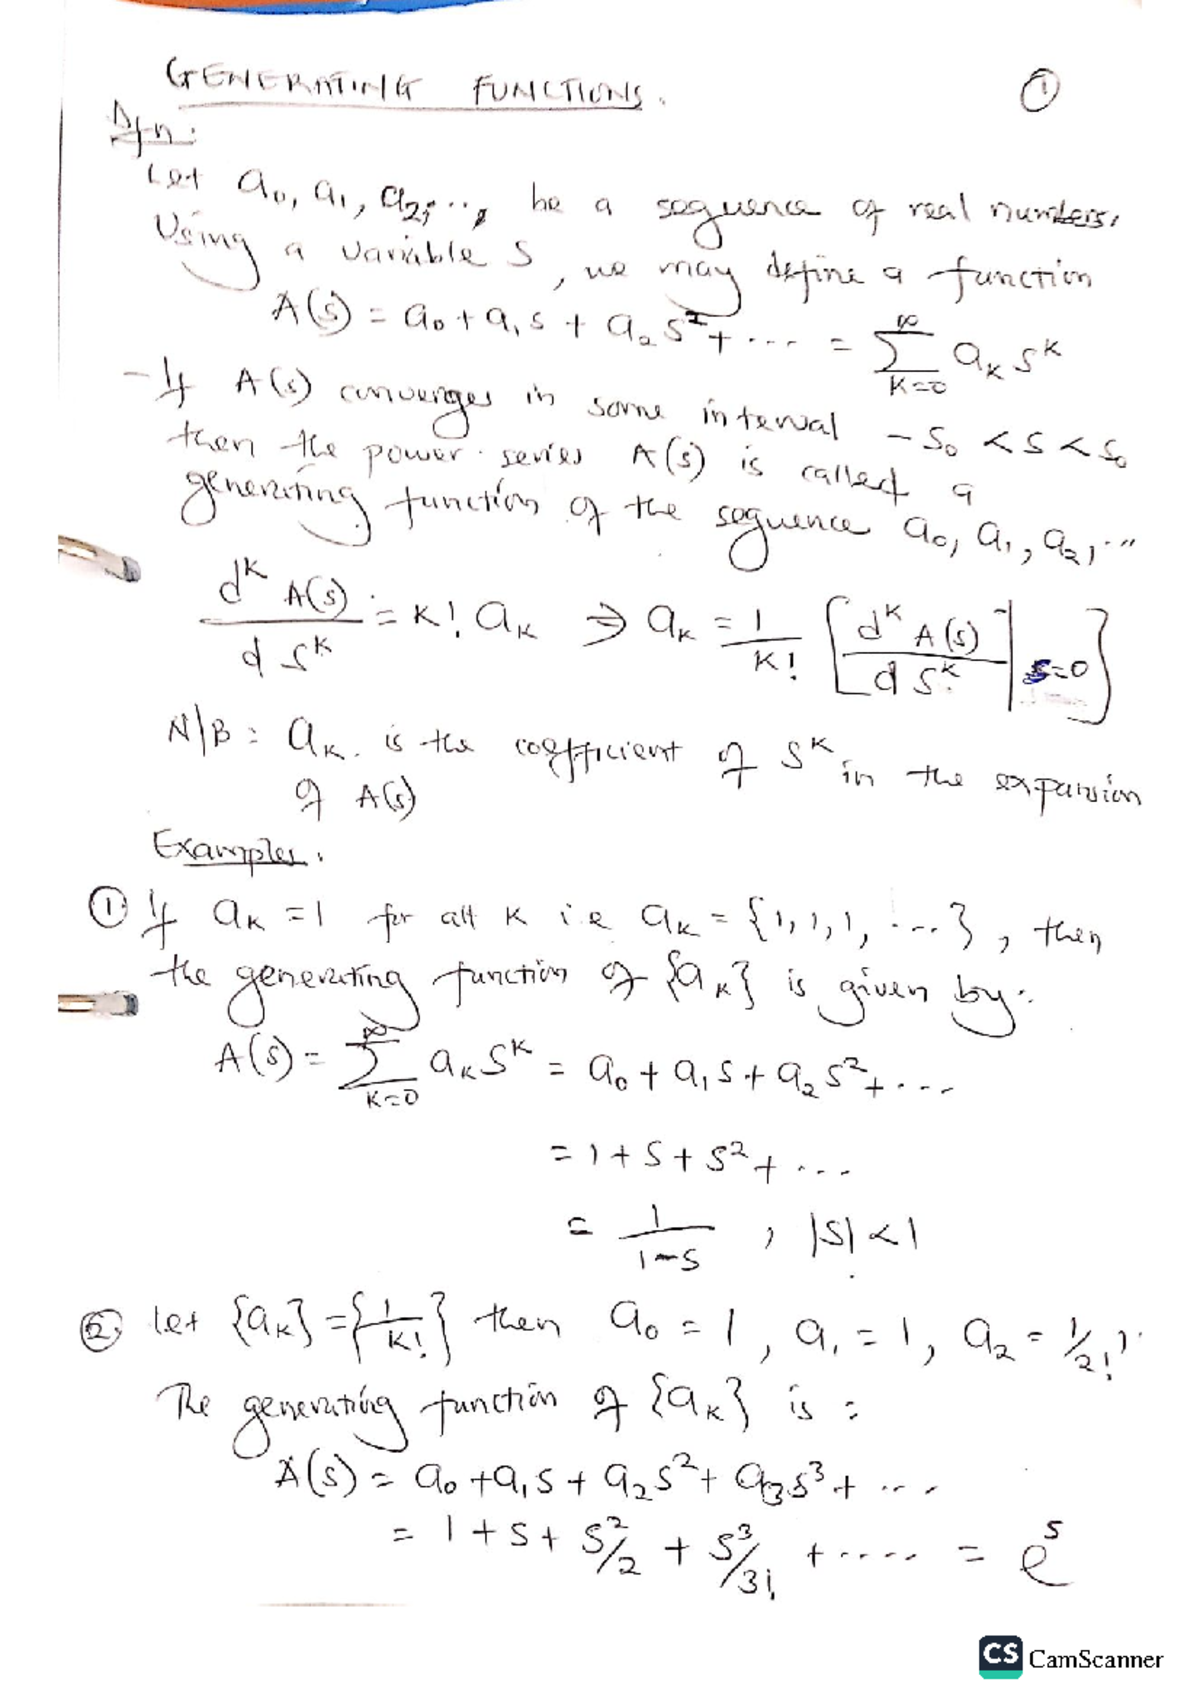 GENERATING FUNCTIONS. ①
Dfn:
Let a₀, a₁, a₂, ..., be a sequence of real numbers.
Using a variable S, we may define a function
A(s) = a₀ + a₁s + a₂s² + .... = ∑_{k=0}^{∞} aₖ sᵏ
- If A(s) converges in some interval -s₀ < s < s₀
then the power series A(s) is called a
generating function of the sequence a₀, a₁, a₂, ...
dᵏ A(s) / d sᵏ = k! aₖ ⇒ aₖ = 1/k! [dᵏ A(s) / d sᵏ |s=0]
N/B: aₖ is the coefficient of sᵏ in the expansion
of A(s)
Examples.
① If aₖ = 1 for all k i.e aₖ = {1, 1, 1, ....}, then
the generating function of {aₖ} is given by:
A(s) = ∑_{k=0}^{∞} aₖ sᵏ = a₀ + a₁s + a₂s² + ....
= 1 + s + s² + ...
= 1/(1-s) , |s| < 1
②. let {aₖ} = {1/k!} then a₀ = 1, a₁ = 1, a₂ = 1/2!, ..
The generating function of {aₖ} is :
A(s) = a₀ + a₁s + a₂s² + a₃s³ + ....
= 1 + s + s²/2 + s³/3! + ..... = eˢ
CS CamScanner